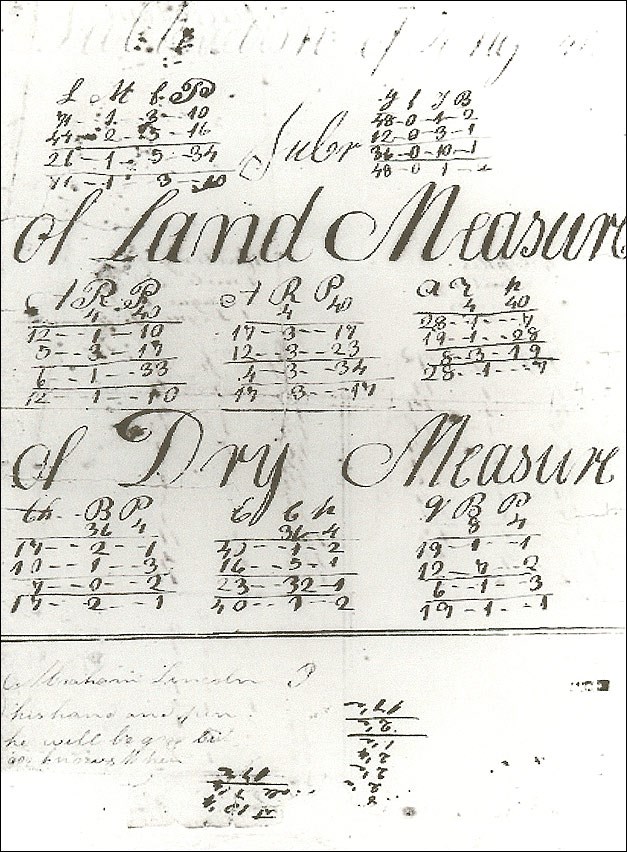 Subtraction of Long Me
L M f P
71 - 1 - 3 - 10
44 - 2 - 5 - 16
26 - 1 - 5 - 34
71 - 1 3 - 10
Subr
y f I B
48 - 0 - 1 - 2
12 - 0 - 3 - 1
36 - 0 - 10 - 1
48 - 0 1 - 2
of Land Measure
A R P
4 40
12 - 1 - 10
5 - 3 - 17
6 - 1 - 33
12 - 1 - 10
A R P
4 40
17 - 3 - 17
12 - 3 - 23
4 - 3 - 34
17 - 3 - 17
a r p
4 40
28 - 1 - 7
19 - 1 - 28
8 - 3 - 19
28 - 1 - 7
of Dry Measure
Ch B P
36 4
17 - 2 - 1
10 - 1 - 3
7 - 0 - 2
17 - 2 - 1
36 - 4
40 - 1 - 2
16 - 5 - 1
23 - 32 - 1
40 - 1 - 2
q B P
8 4
19 - 1 - 1
12 - 7 - 2
6 - 1 - 3
19 - 1 - 1
Abraham Lincoln
his hand and pen
he will be good but
god knows When